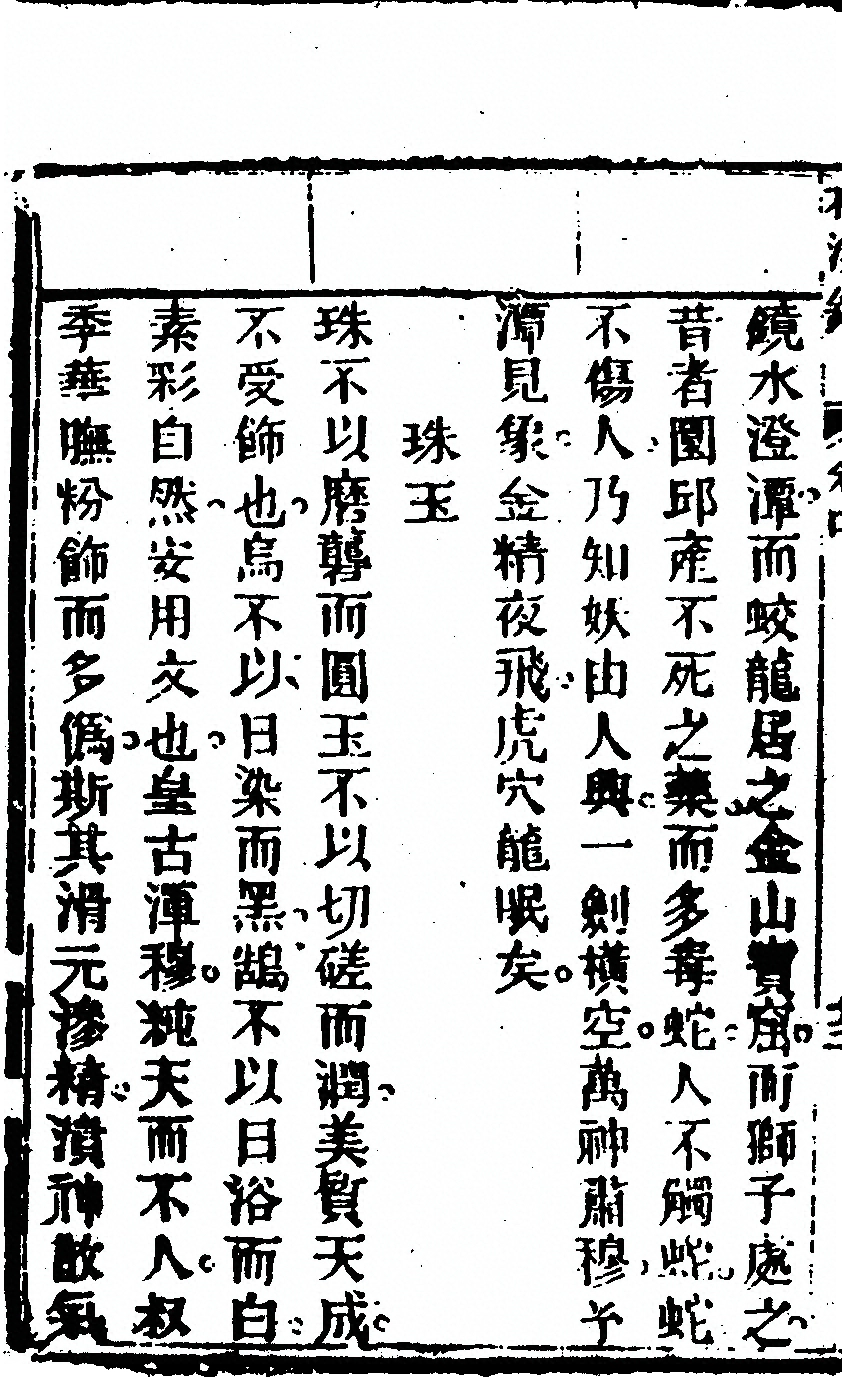 鏡水澄潭而蛟龍居之金山寶窟而獅子處之
昔者圜邱產不死之藥而多毒蛇人不觸蛇蛇
不傷人乃知妖由人興一劍橫空萬神肅穆予
潭見象金精夜飛虎穴龍眠矣
珠玉
珠不以磨礱而圓玉不以切磋而潤美質天成
不受飾也烏不以日染而黑鵠不以日浴而白
素彩自然安用文也皇古渾穆純天而不人叔
季華膴粉飾而多僞斯其滑元滲精潰神散氣